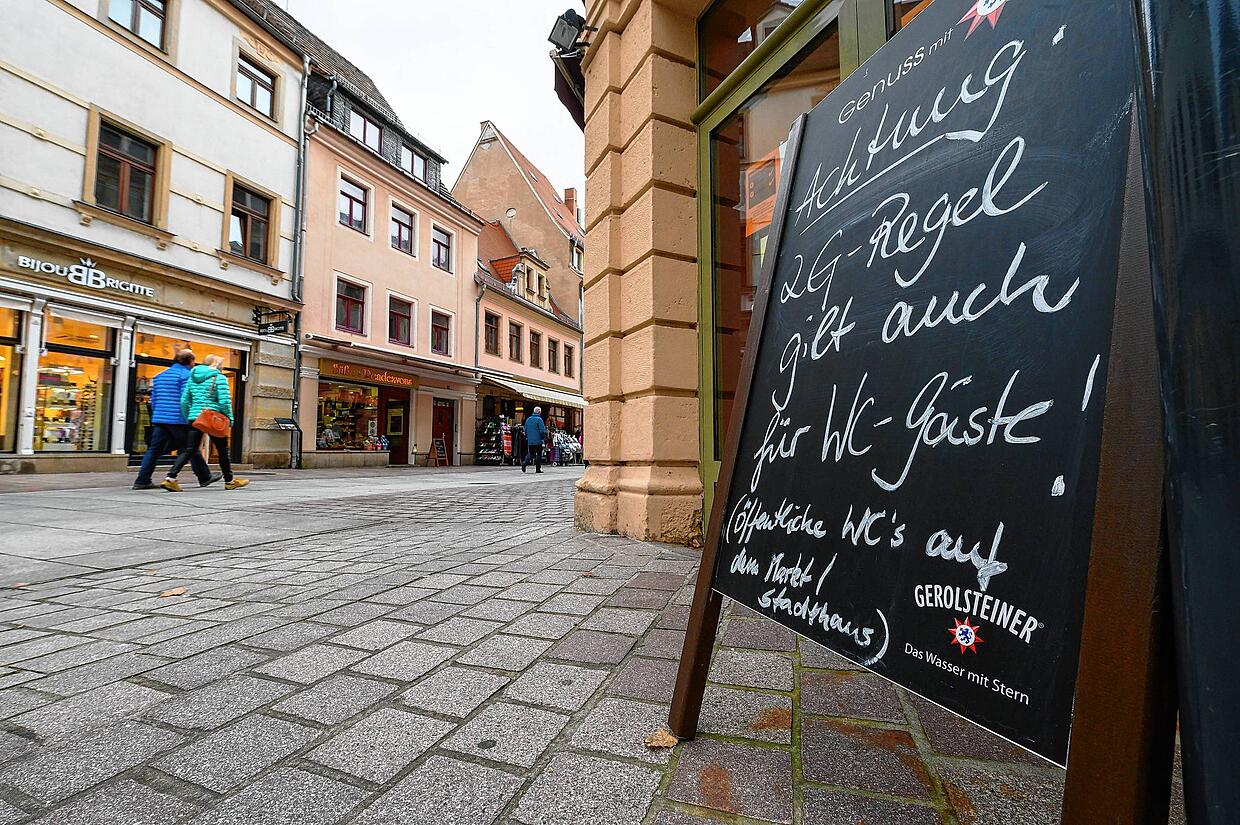 Genuss mit
Achtung
2G-Regel
gilt auch
für WC-Gäste!
(öffentliche WC's auf
dem Markt /
Stadthaus)
GEROLSTEINER®
Das Wasser mit Stern
BIJOU BB BRIGITTE
Süßes Rendezvous